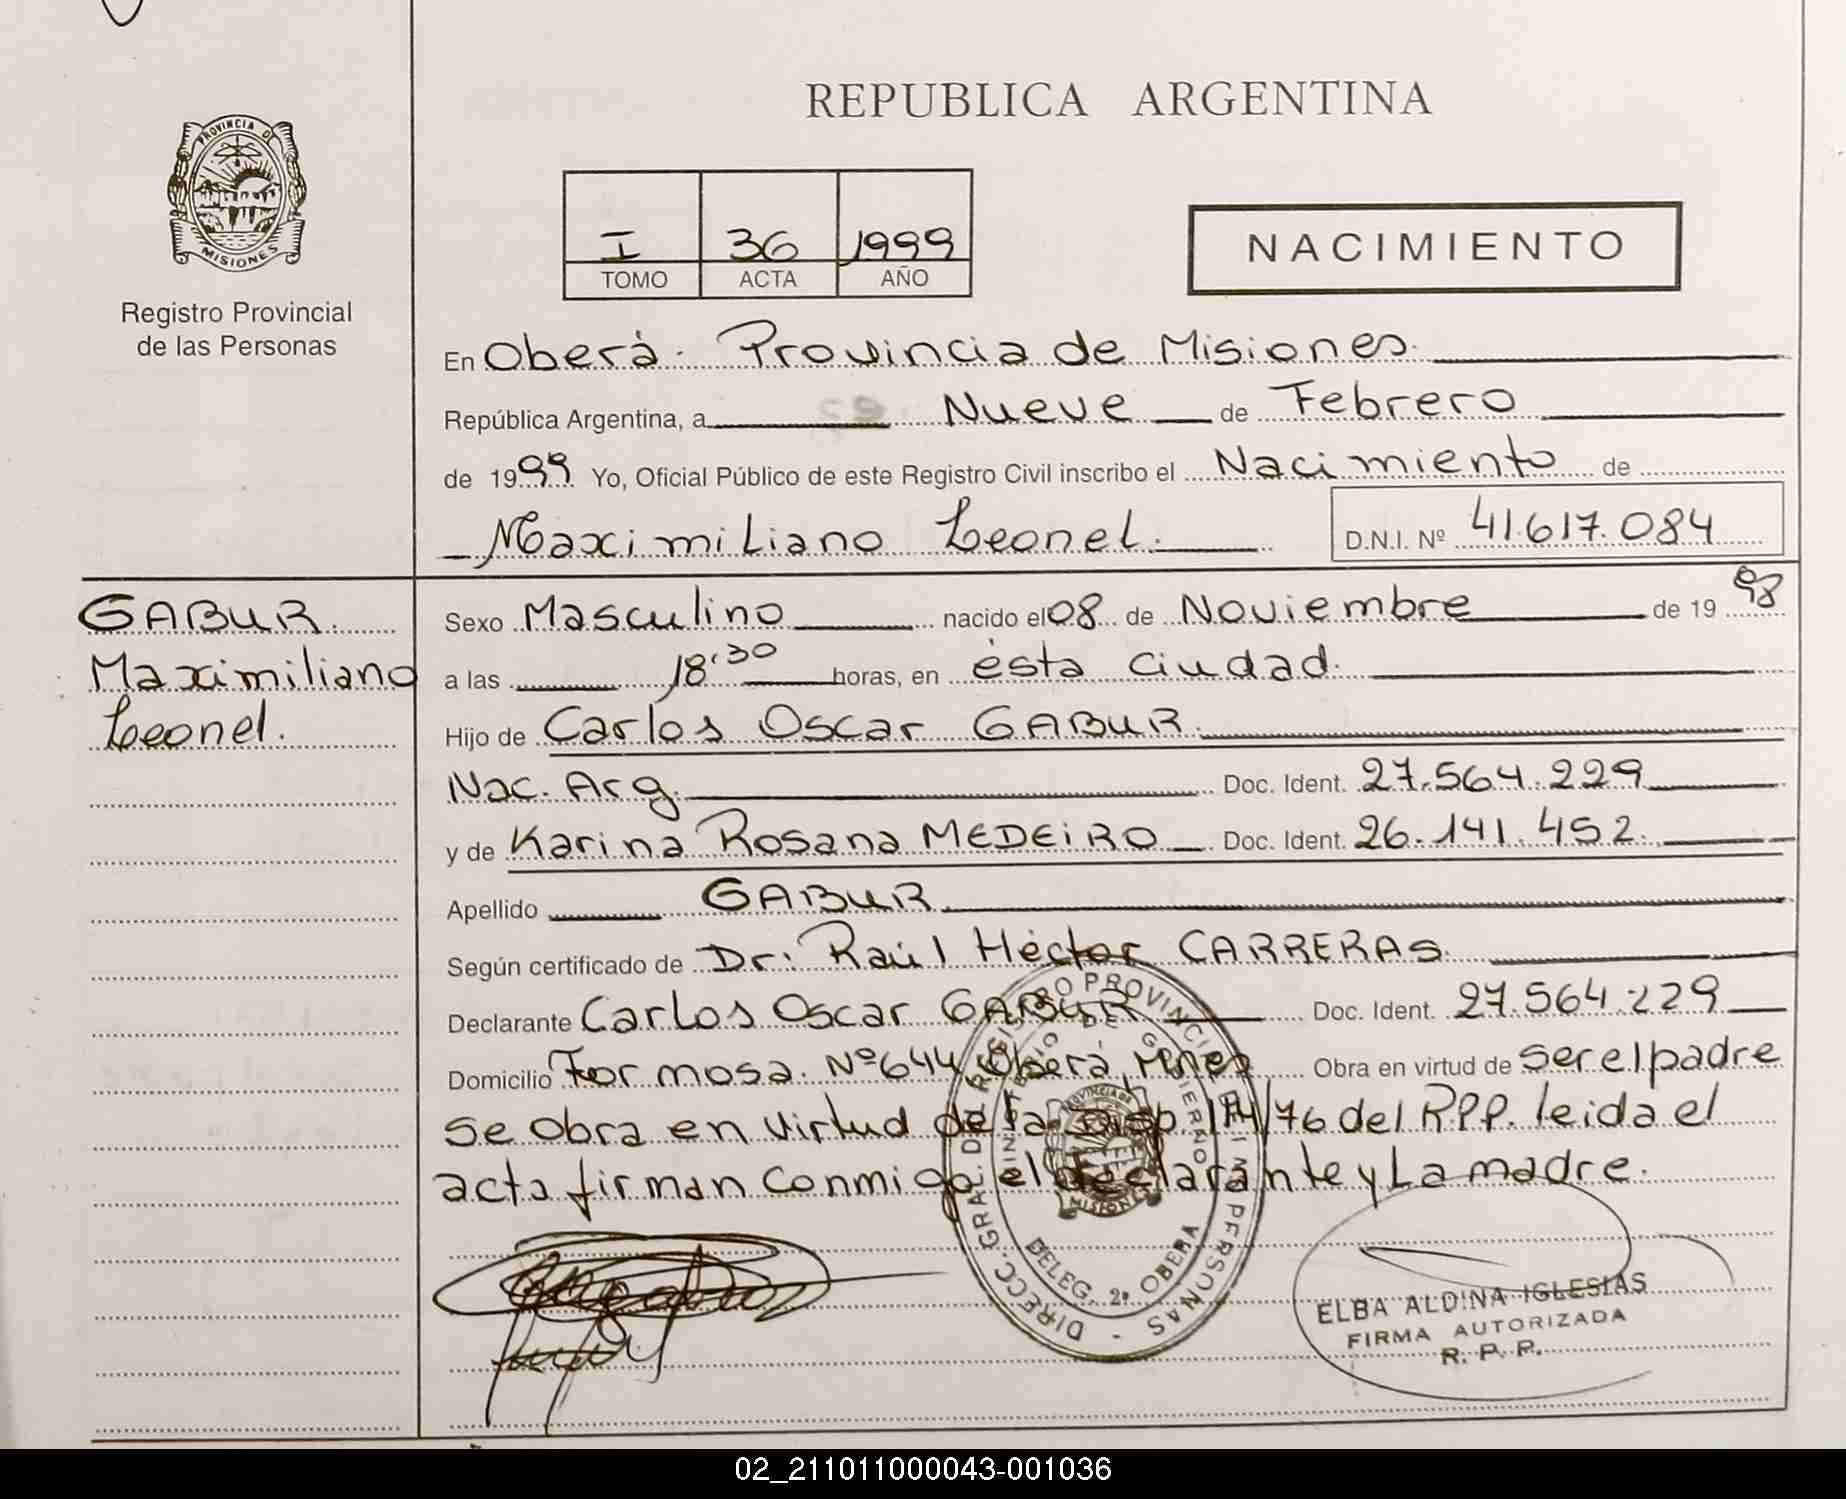 REPUBLICA ARGENTINA
PROVINCIA DE
MISIONES
Registro Provincial
de las Personas
I 36 1999
TOMO ACTA AÑO
NACIMIENTO
En Oberá. Provincia de Misiones.
República Argentina, a Nueve de Febrero
de 1999 Yo, Oficial Público de este Registro Civil inscribo el Nacimiento de
Maximiliano Leonel. D.N.I. Nº 41.617.084
GABUR.
Maximiliano
Leonel.
Sexo Masculino nacido el 08 de Noviembre de 1998
a las 18:30 horas, en ésta ciudad.
Hijo de Carlos Oscar GABUR.
Nac. Arg. Doc. Ident. 27.564.229
y de Karina Rosana MEDEIRO Doc. Ident. 26.141.452.
Apellido GABUR
Según certificado de Dr: Raúl Héctor CARRERAS.
Declarante Carlos Oscar GABUR Doc. Ident. 27.564.229
Domicilio Formosa. Nº 644 Oberá, Mnes Obra en virtud de ser el padre
Se Obra en Virtud de la Disp. 174/76 del R.P.P. leida el
acta firman Conmigo el declarante y La madre.
DIRECC. GRAL. DEL REGISTRO PROVINCIAL DE LAS PERSONAS
MINISTERIO DE GOBIERNO
PROVINCIA DE
MISIONES
DELEG. 2ª OBERA
ELBA ALDINA IGLESIAS
FIRMA AUTORIZADA
R. P. P.
02_211011000043-001036